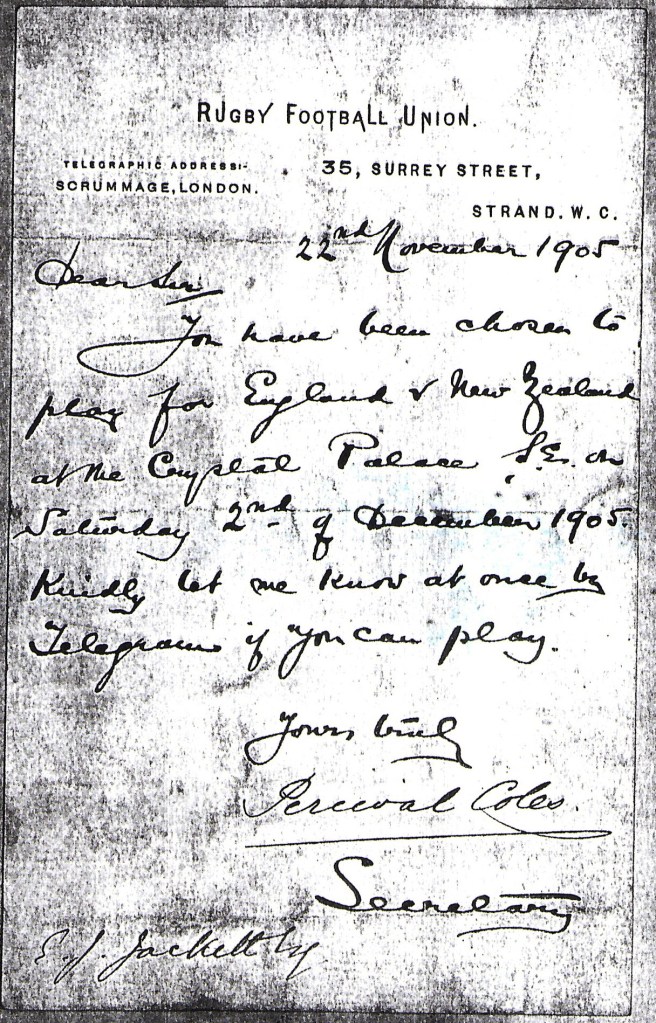 RUGBY FOOTBALL UNION.
TELEGRAPHIC ADDRESS:-
SCRUMMAGE, LONDON.
35, SURREY STREET,
STRAND. W. C.
22nd November 1905
Dear Sir
You have been chosen to
play for England v New Zealand
at the Crystal Palace S.E. on
Saturday 2nd of December 1905.
Kindly let me know at once by
Telegram if you can play.
Yours truly
Percival Coles.
Secretary
E. J. Jackett Esq